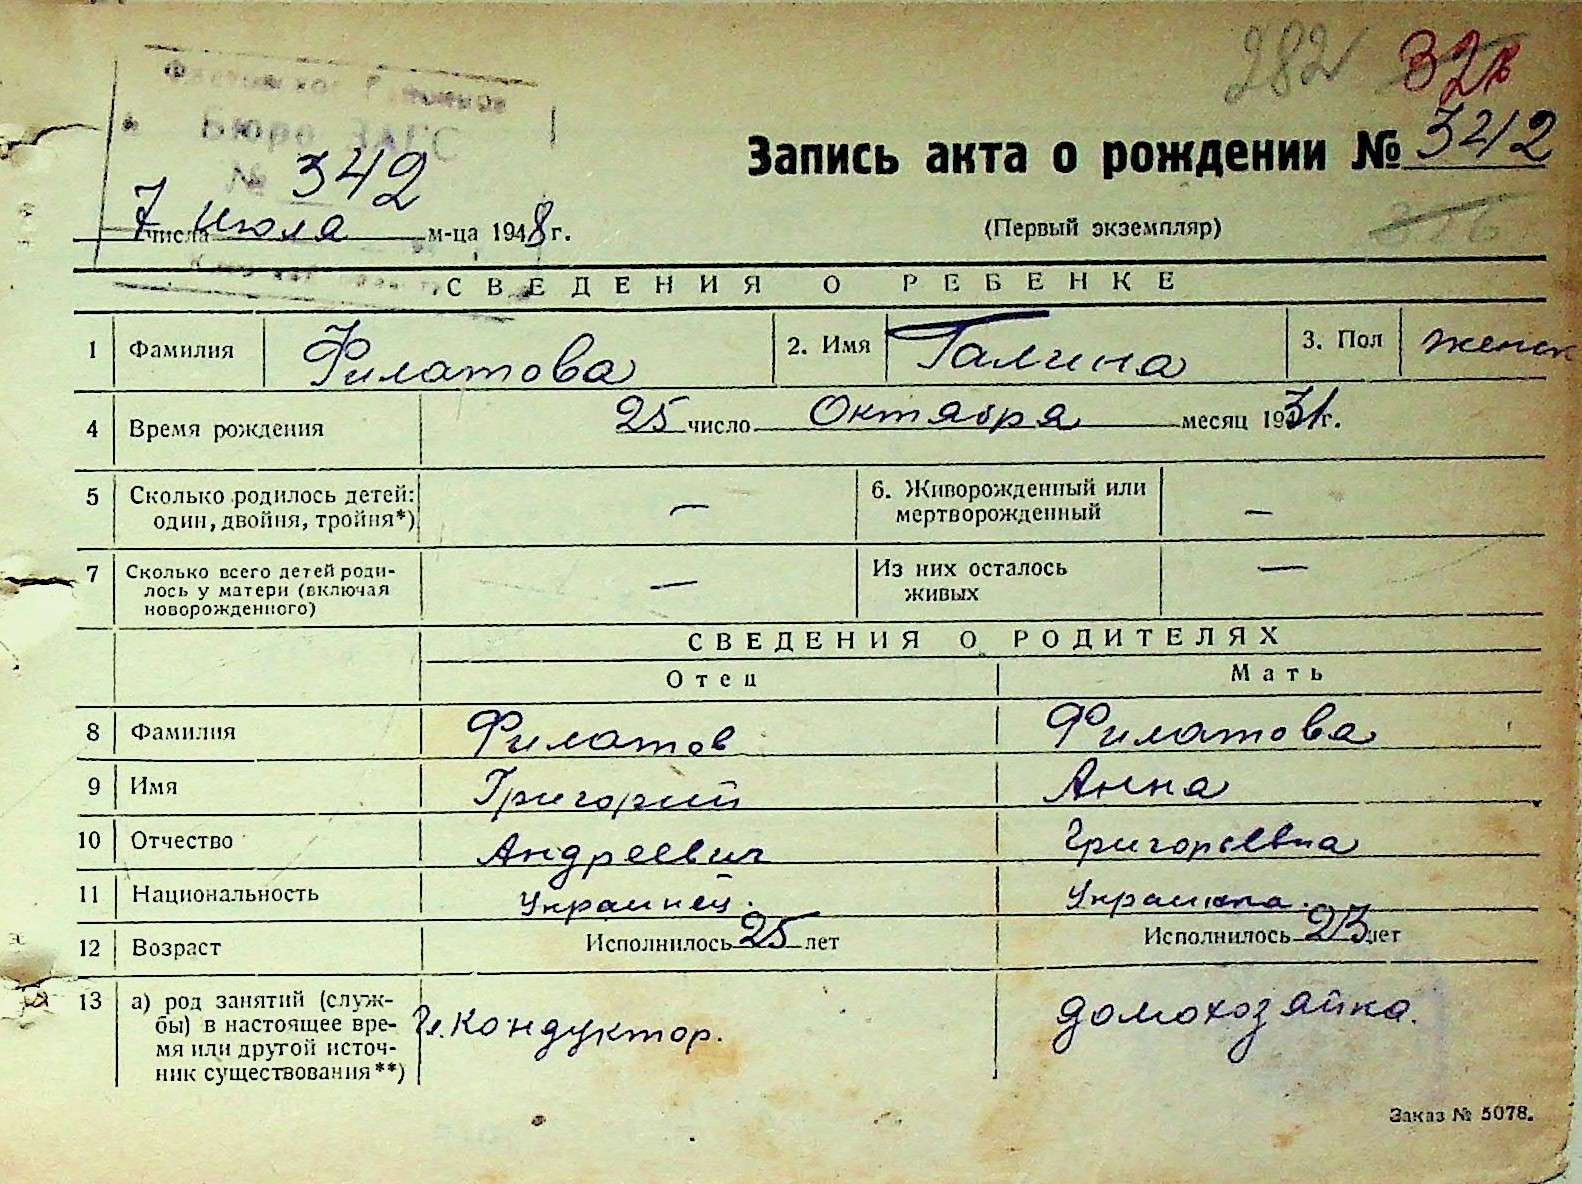 282 32
Бюро ЗАГС
№ 342
7 числа июля м-ца 1948 г.
Запись акта о рождении № 342
(Первый экземпляр)
СВЕДЕНИЯ О РЕБЕНКЕ
1 Фамилия Филатова 2. Имя Галина 3. Пол женск
4 Время рождения 25 число Октября месяц 1931 г.
5 Сколько родилось детей: — 6. Живорожденный или —
один, двойня, тройня*) мертворожденный
7 Сколько всего детей роди- — Из них осталось —
лось у матери (включая живых
новорожденного)
СВЕДЕНИЯ О РОДИТЕЛЯХ
Отец Мать
8 Фамилия Филатов Филатова
9 Имя Григорий Анна
10 Отчество Андреевич Григорьевна
11 Национальность Украинец. Украинка.
12 Возраст Исполнилось 25 лет Исполнилось 23 лет
13 а) род занятий (служ- Гл. Кондуктор. домохозяйка.
бы) в настоящее вре-
мя или другой источ-
ник существования**)
Заказ № 5078.